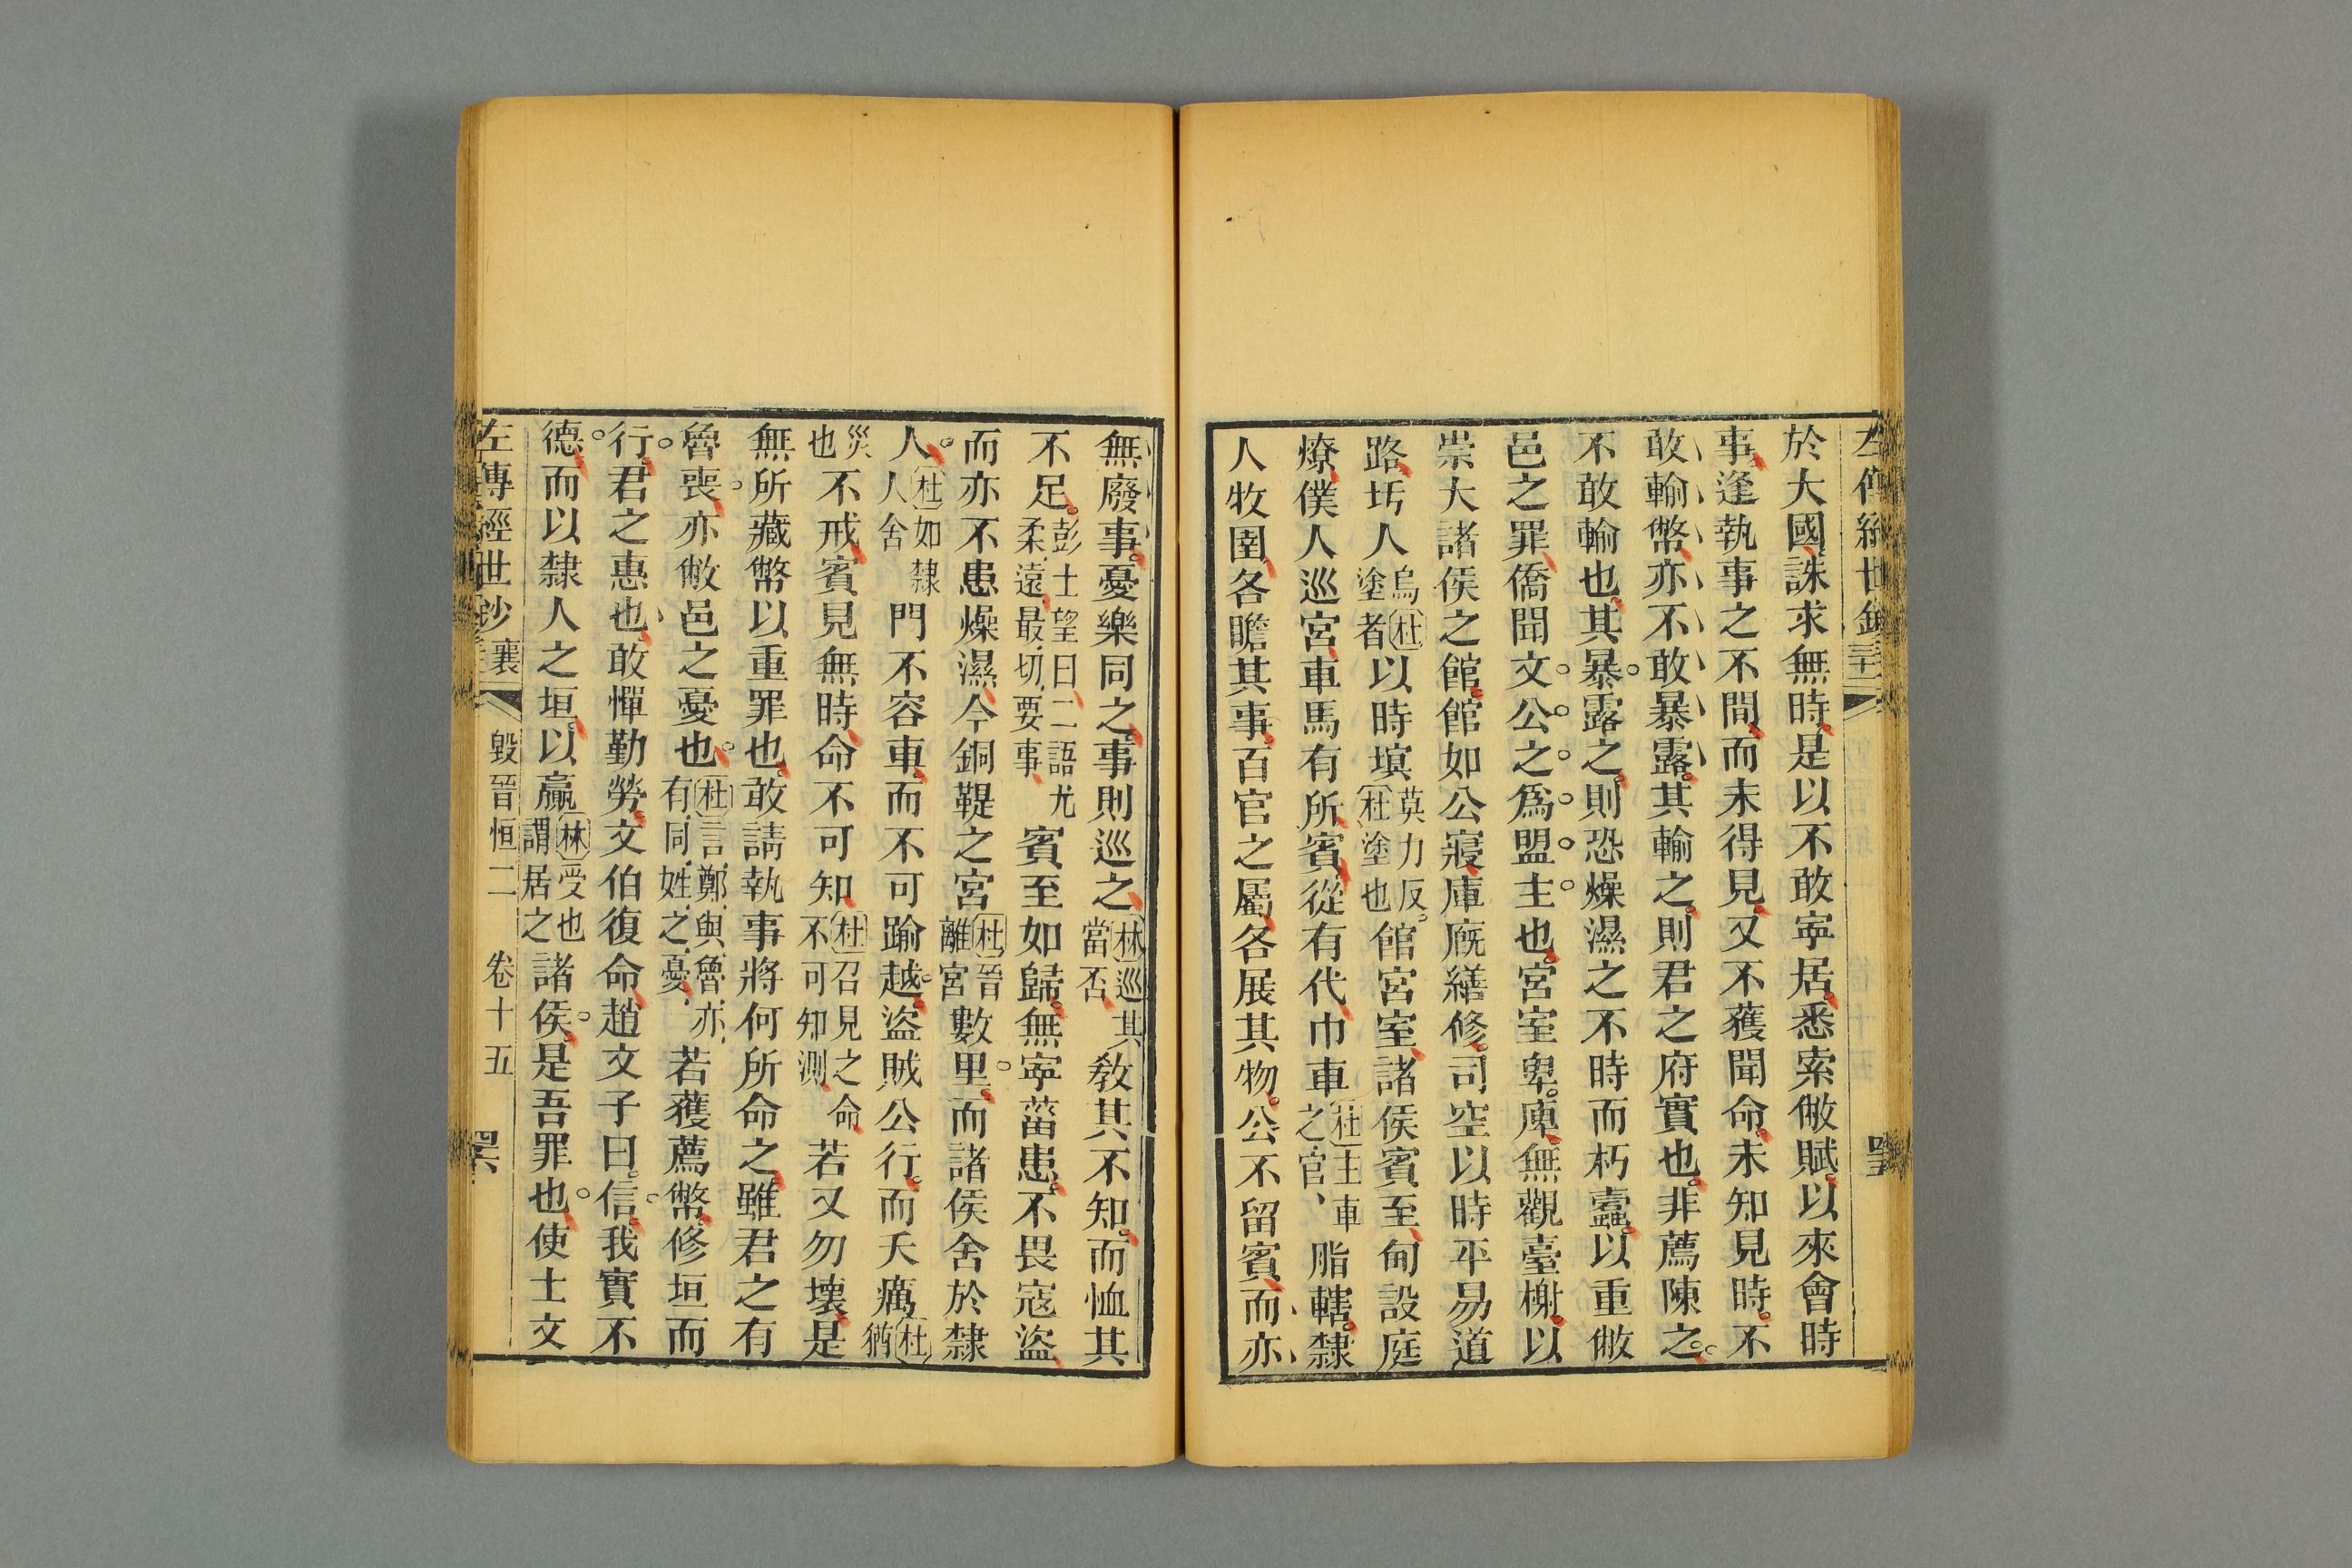 左傳經世鈔
於大國誅求無時是以不敢寧居悉索敝賦以來會時
事逢執事之不間而未得見又不獲聞命未知見時不
敢輸幣亦不敢暴露其輸之則君之府實也非薦陳之
不敢輸也其暴露之則恐燥濕之不時而朽蠹以重敝
邑之罪僑聞文公之爲盟主也宮室卑庳無觀臺榭以
崇大諸侯之館館如公寢庫廐繕修司空以時平易道
路圬人烏杜塗者以時塡莫力反杜塗也館宮室諸侯賓至甸設庭
燎僕人巡宮車馬有所賓從有代巾車杜主車之官脂轄隸
人牧圉各瞻其事百官之屬各展其物公不留賓而亦
無廢事憂樂同之事則巡之林巡其當否教其不知而恤其
不足彭士望曰二語尤柔遠最切要事賓至如歸無寧菑患不畏寇盜
而亦不患燥濕今銅鞮之宮杜晉離宮數里而諸侯舍於隸
人杜如隸人舍門不容車而不可踰越盜賊公行而夭癘杜猶
災也不戒賓見無時命不可知杜召見之命不可知測若又勿壞是
無所藏幣以重罪也敢請執事將何所命之雖君之有
魯喪亦敝邑之憂也杜言鄭與魯亦有同姓之憂若獲薦幣修垣而
行君之惠也敢憚勤勞文伯復命趙文子曰信我實不
德而以隸人之垣以贏林受也謂居之諸侯是吾罪也使士文
左傳經世鈔 襄 毀晉恒二 卷十五